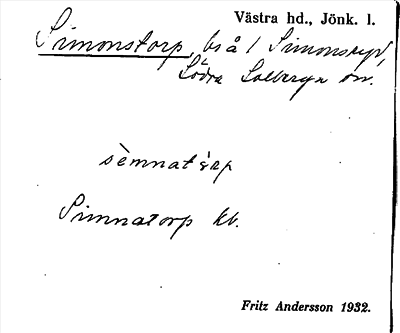 Västra hd., Jönk. l.
Simonstorp, bs å 1 Simonstorp,
Södra Solberga sn.
sèmnatàrp
Simnatorp kb.
Fritz Andersson 1932.